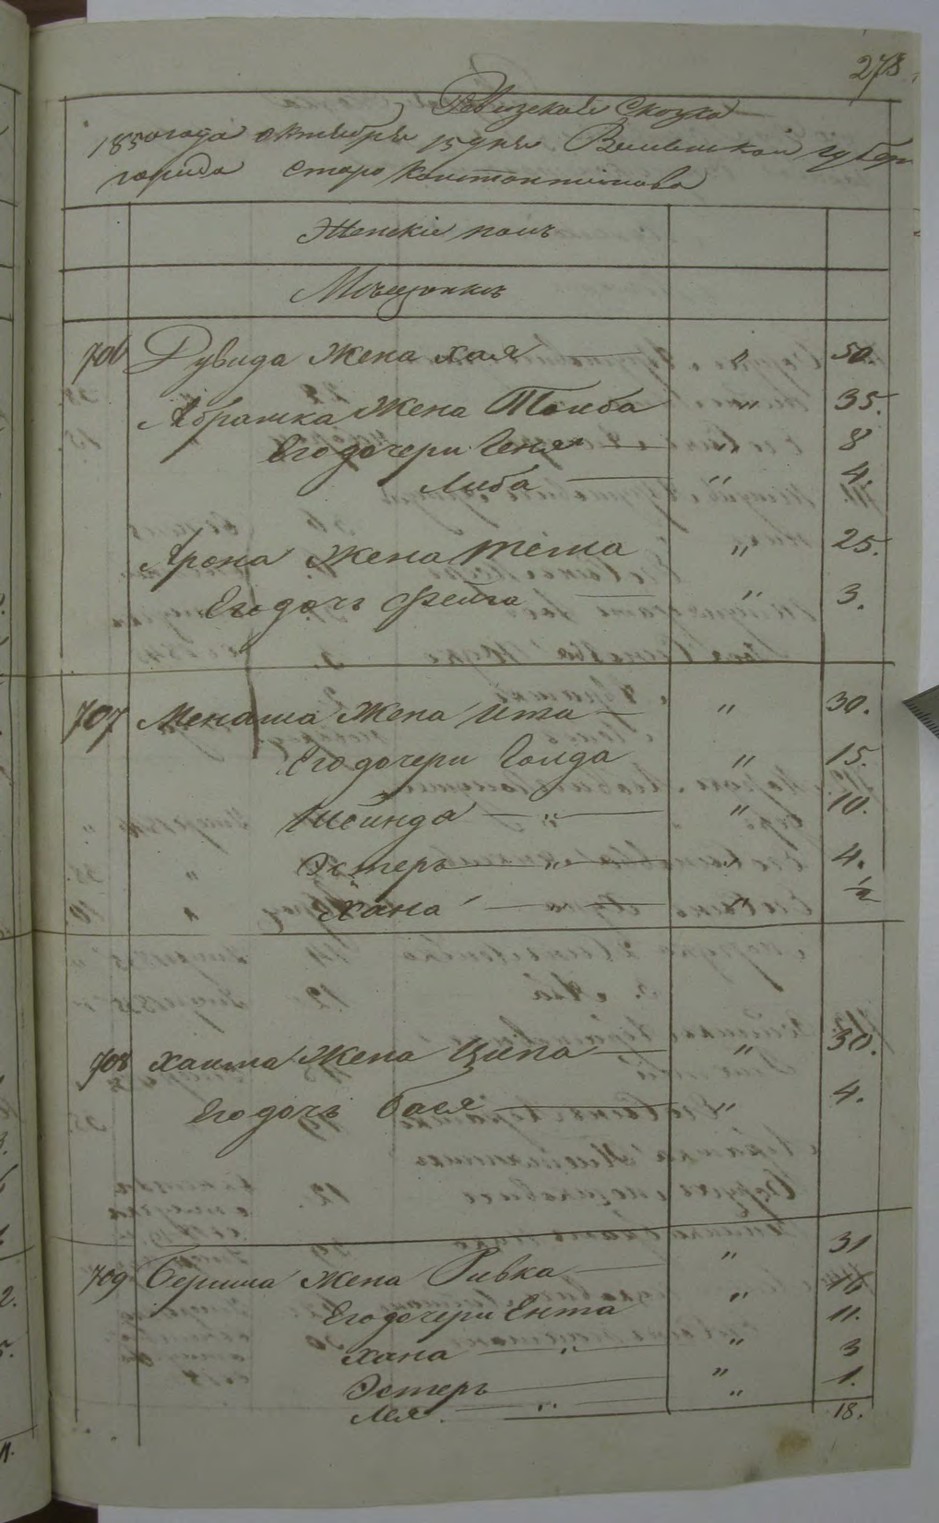 273
Ревизская Сказка
1850 года октября 15 дня Волынской губер
города Старо Константинова
Женскiй полъ
Мѣщанкъ
706 Рувида Жена Хая " 50.
Абрашка Жена Толба " 35.
Его дочери Геня " 8
Либа " 4.
Арона Жена Тема " 25.
Его дочь Фейга " 3.
707 Менаша Жена Ита " 30.
Его дочери Голда " 15.
Шеинда " 10.
Эстеръ " 4.
Хана " ½
708 Хаима Жена Ципа " 30.
Его дочь Бася " 4.
709 Бериша Жена Ривка " 31
Его дочери Ента " 11.
Хана " 3
Эстеръ " 1.
Лея "
18.